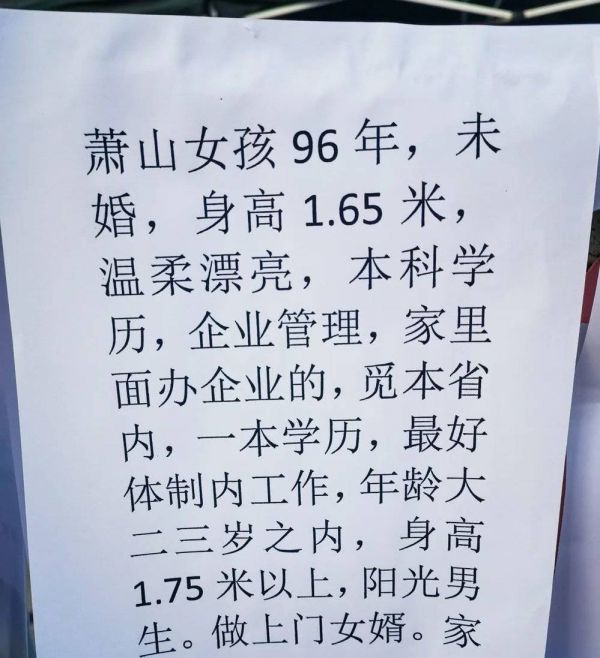 萧山女孩 96 年，未
婚，身高 1.65 米，
温柔漂亮，本科学
历，企业管理，家里
面办企业的，觅本省
内，一本学历，最好
体制内工作，年龄大
二三岁之内，身高
1.75 米以上，阳光男
生。做上门女婿。家